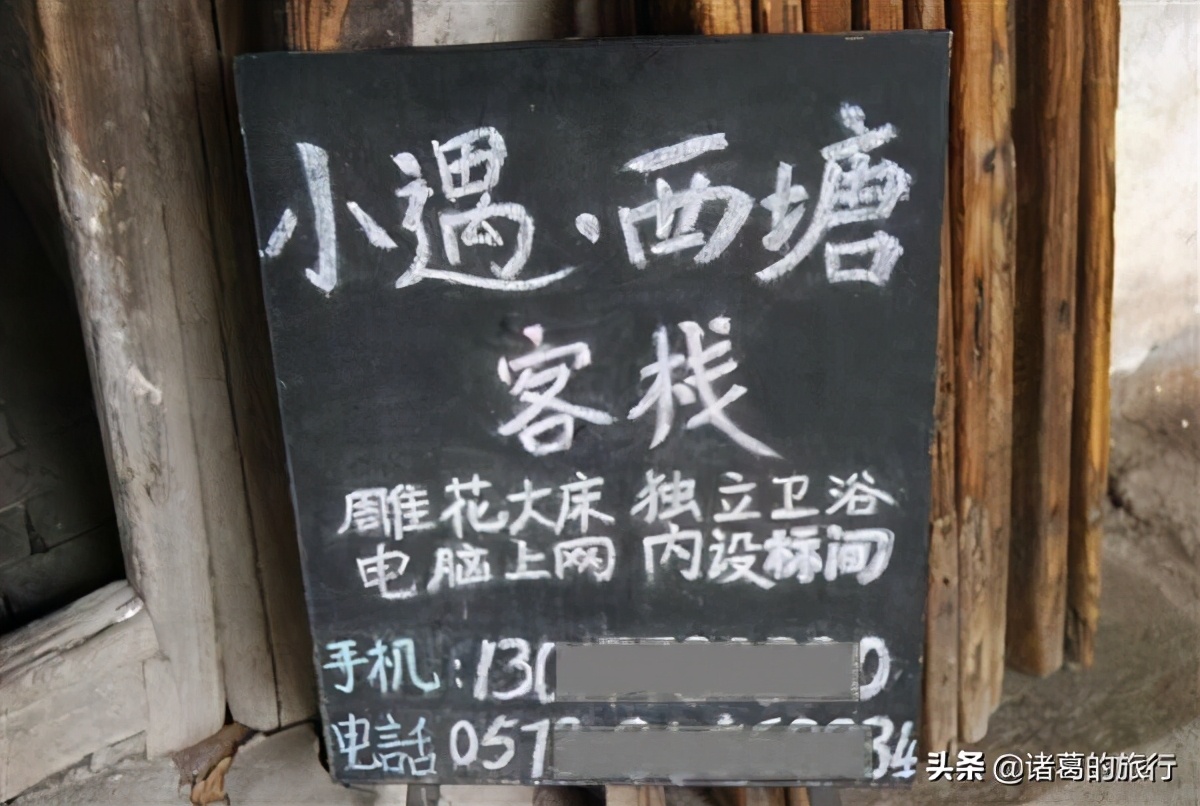 小遇·西塘
客栈
雕花大床 独立卫浴
电脑上网 内设标间
手机:13
电話 057 34
头条 @诸葛的旅行